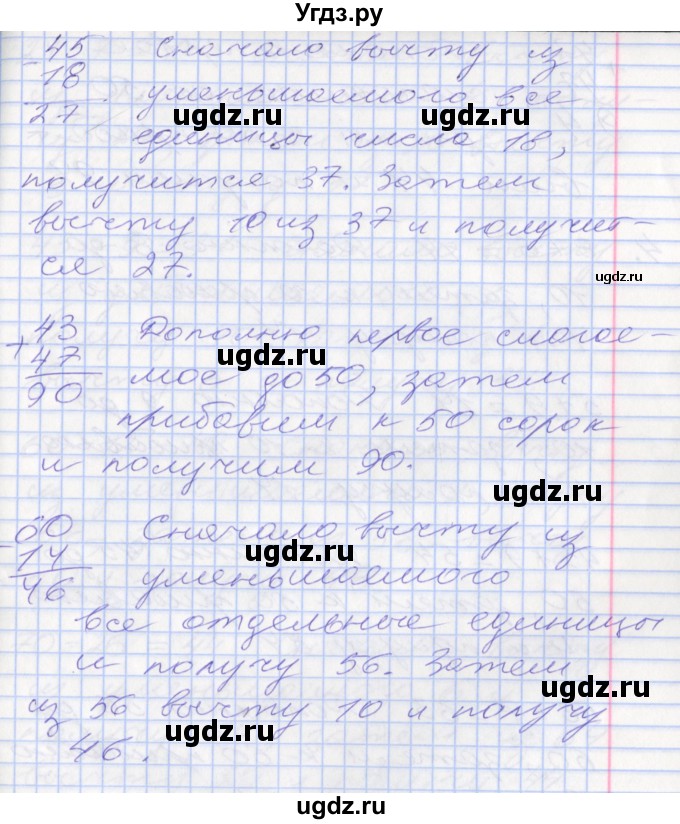 Угдз.ру
- 45 Сначало вычту из
18 уменьшаемого все
27 единицы числа 18,
получится 37. Затем
вычту 10 из 37 и получит-
ся 27.
+ 43 Дополню первое слогае-
47 мое до 50, затем
90 прибавим к 50 сорок
и получим 90.
- 60 Сначало вычту из
14 уменьшаемого
46 все отдельные единицы
и получу 56. Затем
из 56 вычту 10 и получу
46.
ugdz.ru
ugdz.ru
ugdz.ru
ugdz.ru
ugdz.ru
ugdz.ru
ugdz.ru
ugdz.ru
ugdz.ru
ugdz.ru